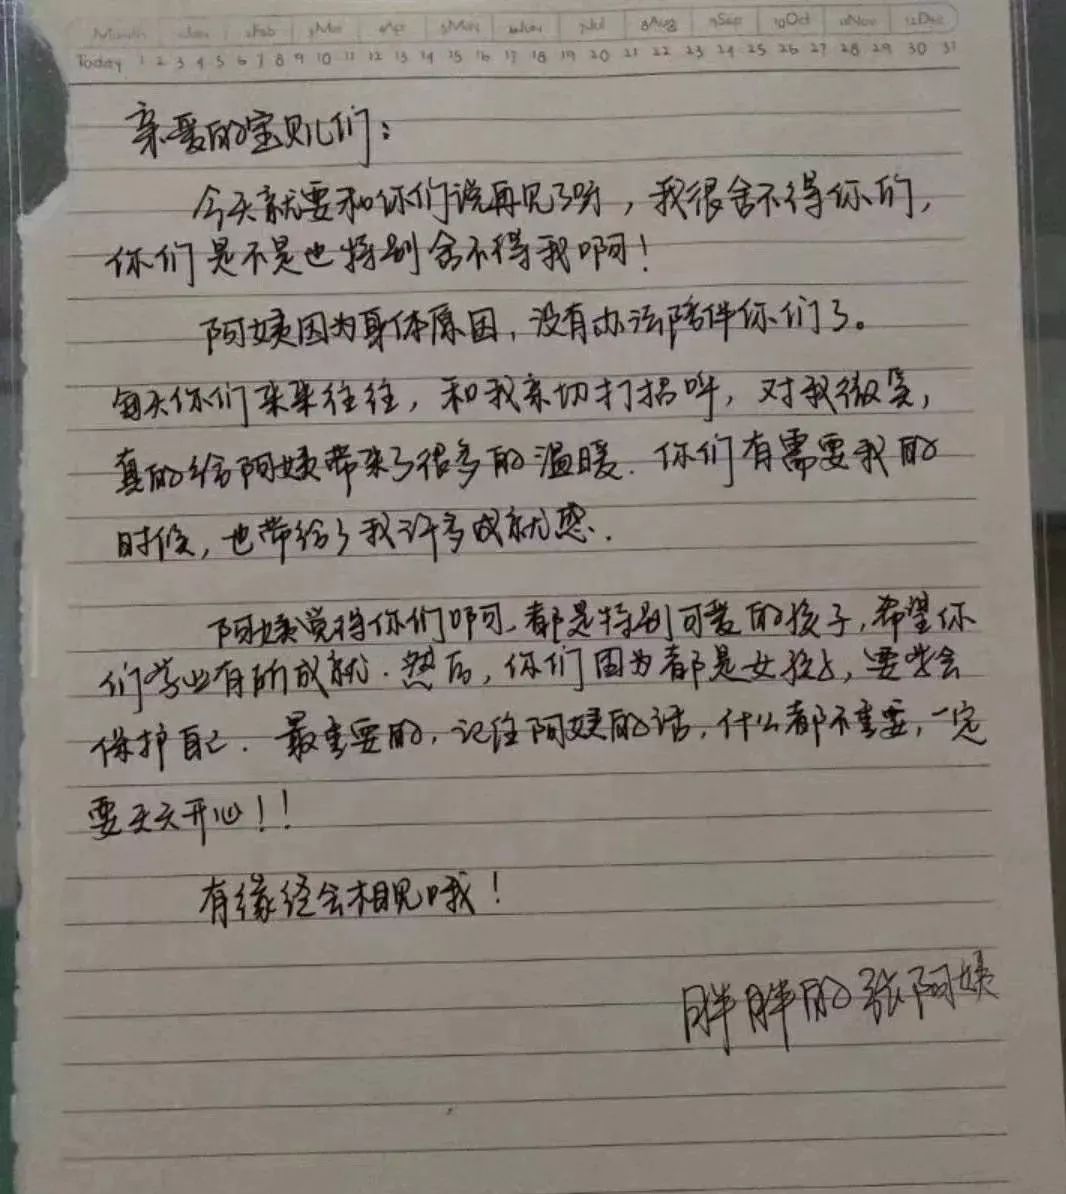 Month 1Jan 2Feb 3Mar 4Apr 5May 6Jun 7Jul 8Aug 9Sep 10Oct 11Nov 12Dec
Today 1 2 3 4 5 6 7 8 9 10 11 12 13 14 15 16 17 18 19 20 21 22 23 24 25 26 27 28 29 30 31
亲爱的宝贝儿们：
今天就要和你们说再见了呀，我很舍不得你们，
你们是不是也特别舍不得我啊！
阿姨因为身体原因，没有办法陪伴你们了。
每天你们来来往往，和我亲切打招呼，对我微笑，
真的给阿姨带来了很多的温暖．你们有需要我的
时候，也带给了我许多成就感．
阿姨觉得你们啊，都是特别可爱的孩子，希望你
们学业有所成就．然后，你们因为都是女孩子，要学会
保护自己．最重要的，记住阿姨的话，什么都不重要，一定
要天天开心！！
有缘终会相见哦！
胖胖的张阿姨